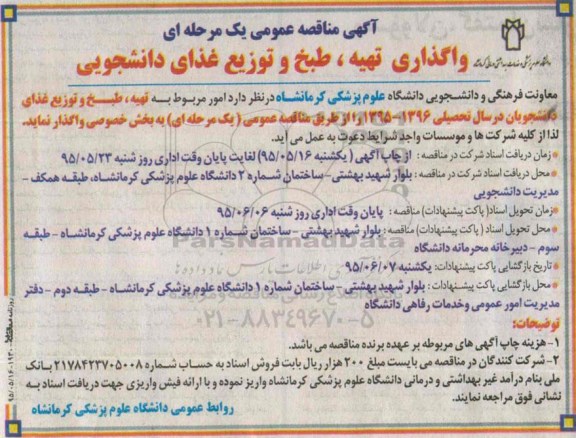 آگهی مناقصه عمومی یک مرحله ای
واگذاری تهیه ، طبخ و توزیع غذای دانشجویی
معاونت فرهنگی و دانشـجویی دانشگاه علوم پزشکی کرمانشـاه درنظر دارد امور مربـوط بـه تهیه ، طبـخ و توزیع غذای
دانشجویان درسال تحصیلی ۱۳۹۶-۱۳۹۵ را از طریق مناقصه عمومی ( یک مرحله ای) به بخش خصوصی واگذار نماید.
لذا از کلیه شرکت ها و موسسات واجد شرایط دعوت به عمل می آید.
• زمان دریافت اسناد شرکت در مناقصه : از چاپ آگهی ( یکشنبه ۹۵/۰۵/۱۶) لغایت پایان وقت اداری روز شنبه ۹۵/۰۵/۲۳
• محل دریافت اسناد شرکت در مناقصه : بلوار شهید بهشتی- ساختمان شماره ۲ دانشگاه علوم پزشکی کرمانشاه، طبقه همکف -
مدیریت دانشجویی
• زمان تحویل اسناد( پاکت پیشنهادات) مناقصه : پایان وقت اداری روز شنبه ۹۵/۰۶/۰۶
• محل تحویل اسناد ( پاکت پیشنهادات) مناقصه : بلوار شهید بهشتی - ساختمان شماره ۱ دانشگاه علوم پزشکی کرمانشـاه - طبقـه
سوم - دبیرخانه محرمانه دانشگاه
• تاریخ بازگشایی پاکت پیشنهادات: یکشنبه ۹۵/۰۶/۰۷
• محل بازگشایی پاکت پیشنهادات: بلوار شهید بهشتی- ساختمان شماره ۱ دانشگاه علوم پزشکی کرمانشاه - طبقه دوم - دفتر
مدیریت امور عمومی وخدمات رفاهی دانشگاه
توضیحات:
۱- هزینه چاپ آگهی های مربوطه بر عهده برنده مناقصه می باشد.
۲- شرکت کنندگان در مناقصه می بایست مبلغ ۲۰۰ هزار ریال بابت فروش اسناد به حساب شماره ۲۱۷۸۴۲۳۷۰۵۰۰۸ بـانک
ملی بنام درآمد غیر بهداشتی و درمانی دانشگاه علوم پزشکی کرمانشاه واریز نموده و با ارائه فیش واریزی جهت دریافت اسناد به
نشانی فوق مراجعه نمایند.
روابط عمومی دانشگاه علوم پزشکی کرمانشاه
ParsNamadData
۰۲۱-۸۸۳۴۹۶۷۰-۵